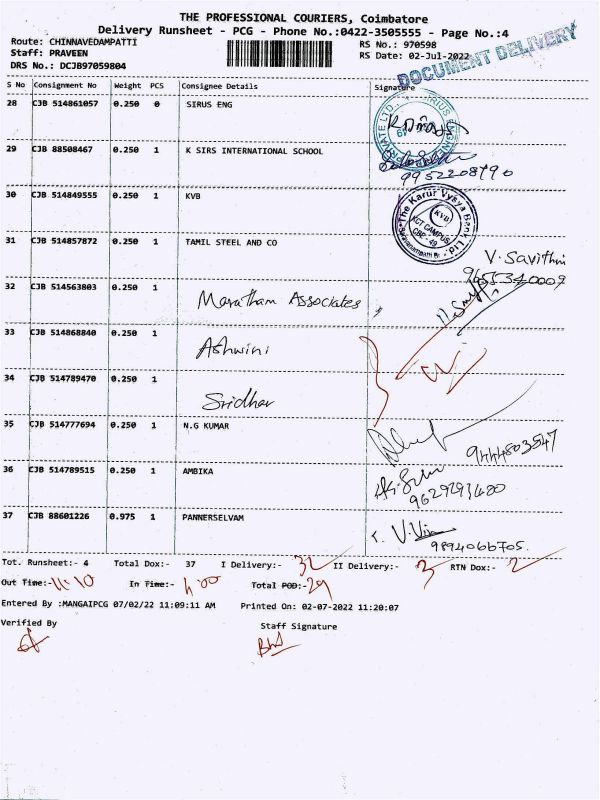 THE PROFESSIONAL COURIERS, Coimbatore
Delivery Runsheet - PCG - Phone No.:0422-3505555 - Page No.:4
Route: CHINNAVEDAMPATTI RS No.: 970598
Staff: PRAVEEN RS Date: 02-Jul-2022
DRS No.: DCJB97059804
DOCUMENT DELIVERY
S No Consignment No Weight PCS Consignee Details Signature
28 CJB 514861057 0.250 0 SIRUS ENG
29 CJB 88508467 0.250 1 K SIRS INTERNATIONAL SCHOOL
9952208790
30 CJB 514849555 0.250 1 KVB
The Karur Vysya Bank Ltd.
KVB
KCT CAMPUS
CBE - 49
31 CJB 514857872 0.250 1 TAMIL STEEL AND CO
V. Savithri
9655340009
32 CJB 514563803 0.250 1 Maratham Associates
33 CJB 514868840 0.250 1 Ashwini
34 CJB 514789470 0.250 1 Sridhar
35 CJB 514777694 0.250 1 N.G KUMAR
9444803547
36 CJB 514789515 0.250 1 AMBIKA
9629293480
37 CJB 88601226 0.975 1 PANNERSELVAM
9894066705.
Tot. Runsheet:- 4 Total Dox:- 37 I Delivery:- 32 II Delivery:- 3 RTN Dox:- 2
Out Time:- 11:10 In Time:- 4:00 Total POD:- 29
Entered By :MANGAIPCG 07/02/22 11:09:11 AM Printed On: 02-07-2022 11:20:07
Verified By Staff Signature